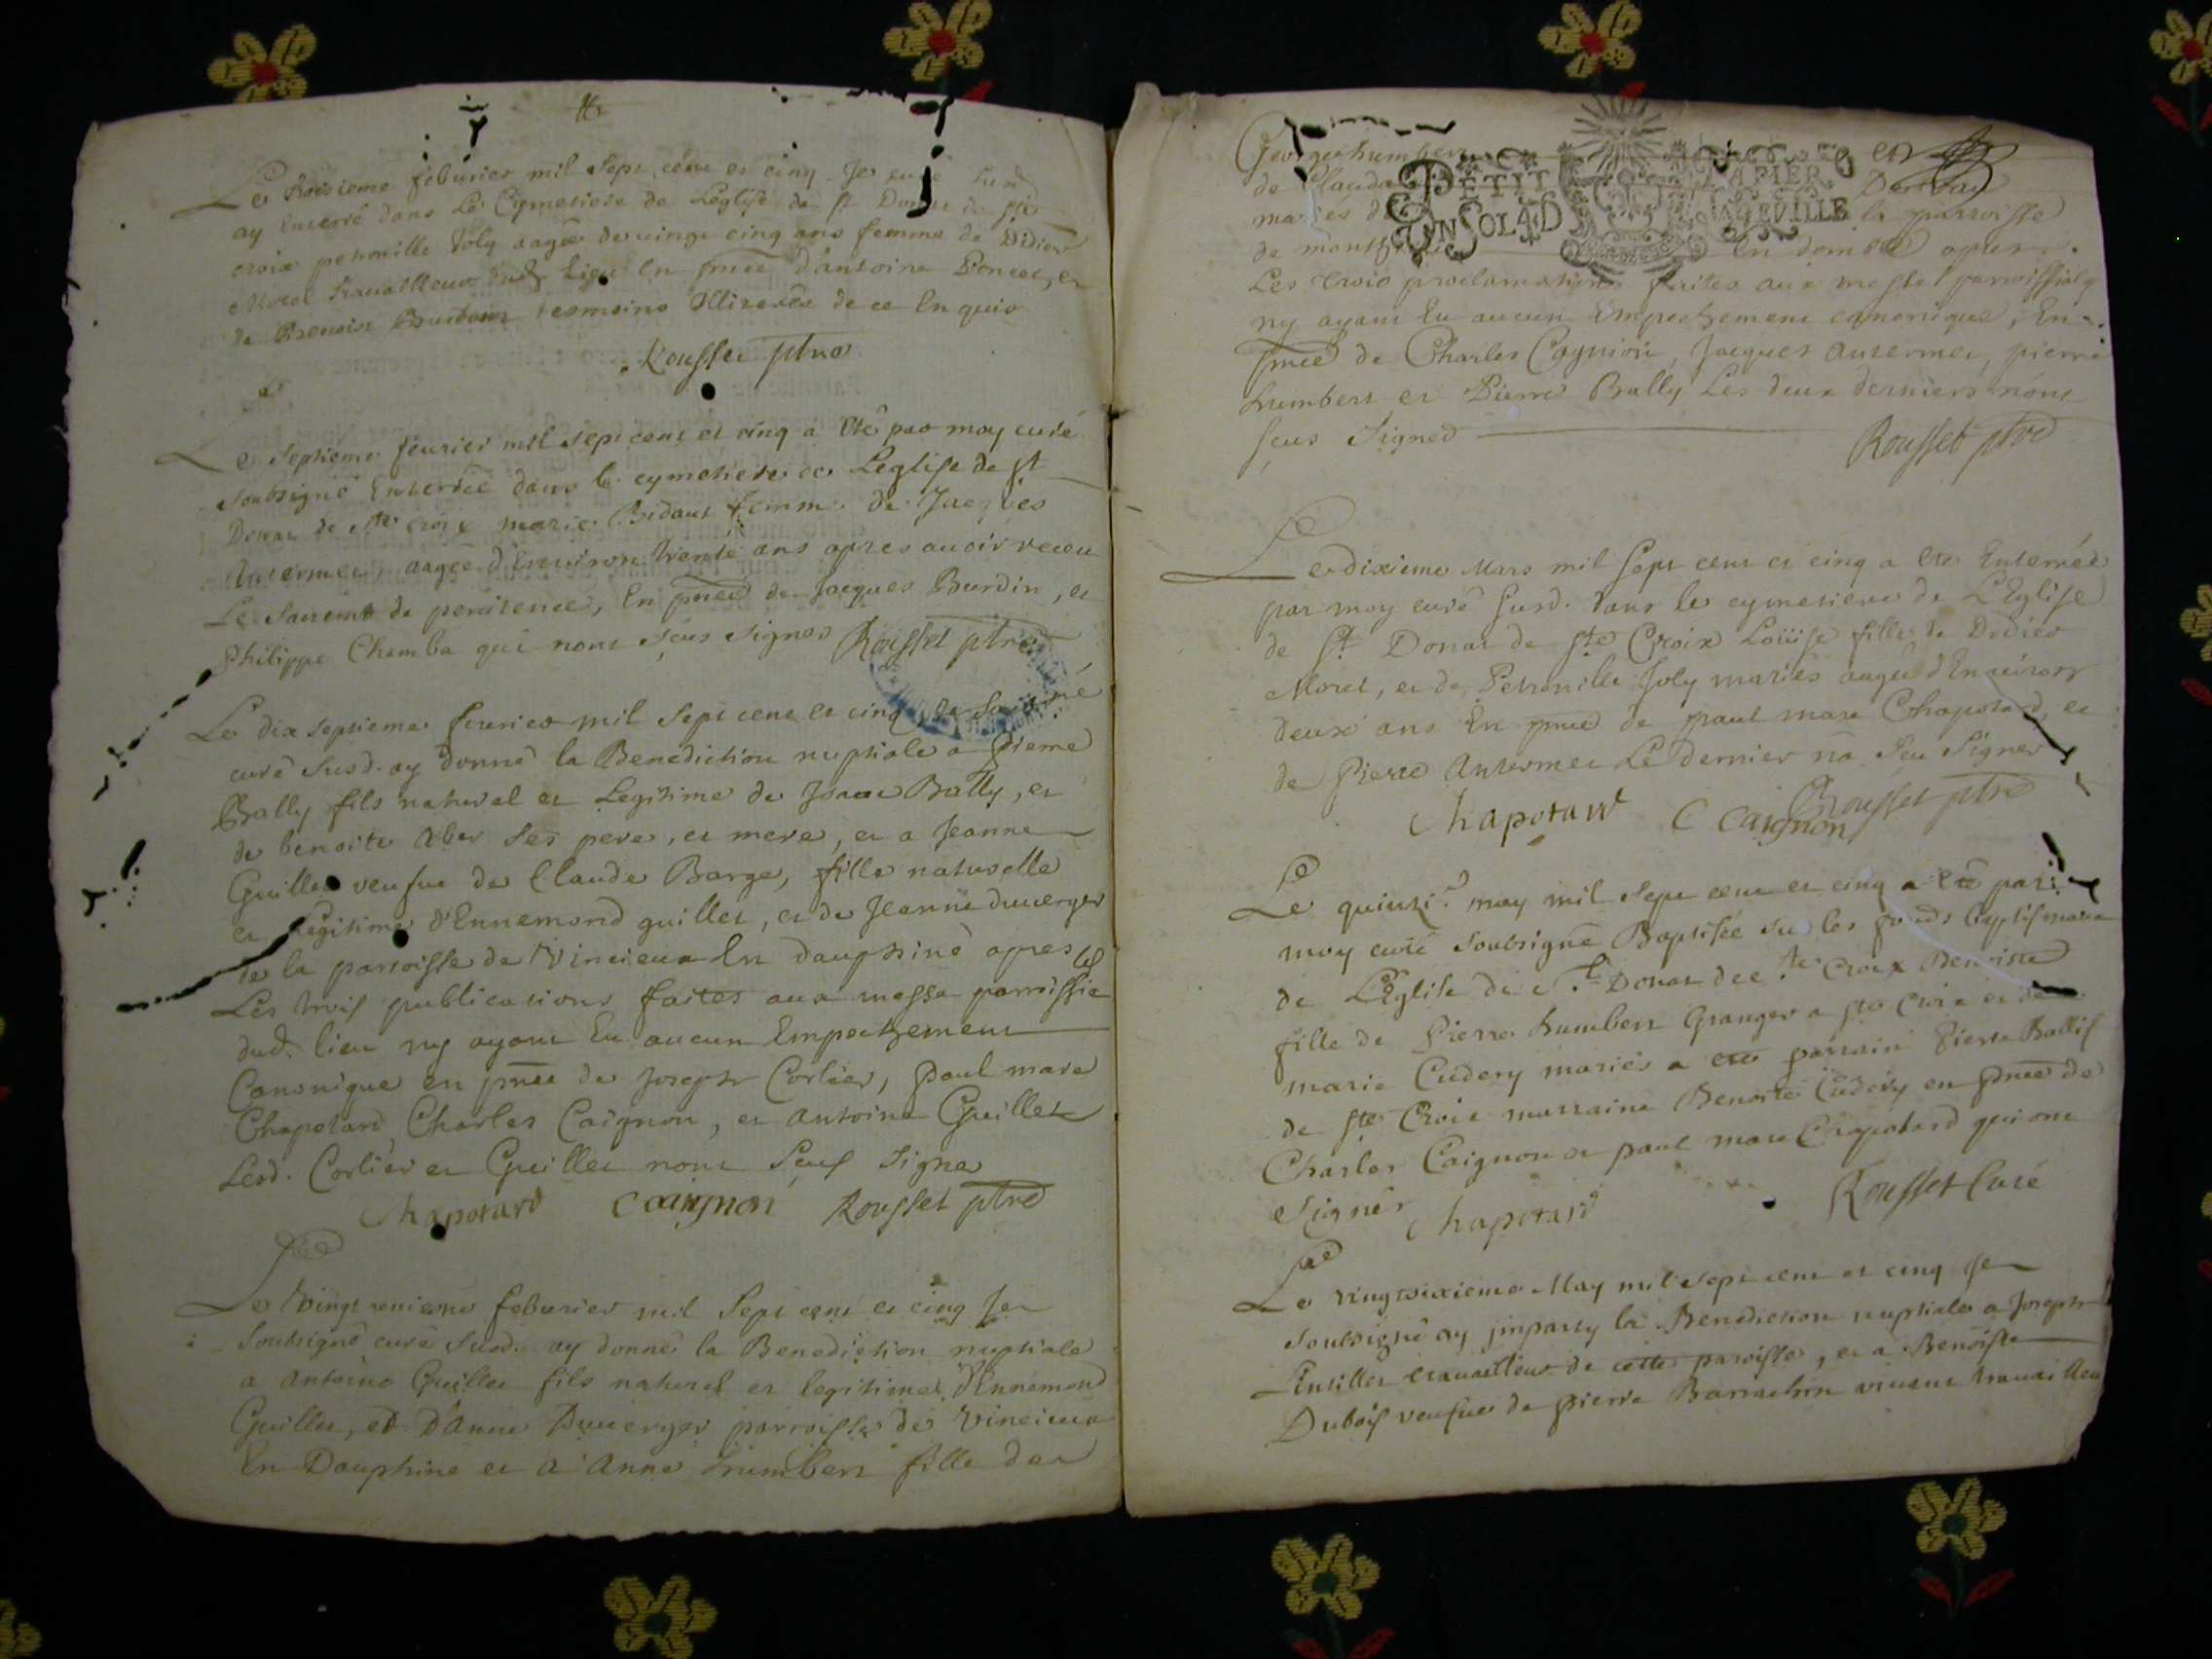 Le troisieme feburier mil sept cent et cinq Je curé susd
ay Enterré dans Le Cymetiere de Leglise de st Donat de ste
croix petronille Joly aagée de vingt cinq ans femme de Didier
Moret travailleur dud lieu En pnce d'antoine Poncet, et
de Benoist tesmoins Illiterés de ce Enquis
Rousset ptre
Le Septieme feurier mil sept cent et cinq a eté par moy curé
soubsigné Enterrée dans le cymetiere de Leglise de st
Donat de Ste croix marie Bidaut femme de Jacques
Antermet, aagée d'Enuiron trente ans apres auoir receu
Le Sacremt de penitence, En pnce de Jacques Burdin, et
Philippe Chamba qui n'ont sçeu signer Rousset ptre
Le dix septieme feurier mil sept cent et cinq Je Soub né
curé susd. ay donné la Benediction nuptiale a pierre
Bally fils naturel et Legitime de Isaac Bally, et
de benoite Aber ses pere, et mere, et a Jeanne
Guillet veufue de Claude Barge, fille naturelle
et Legitime d'Ennemond guillet, et de Jeanne duverger
de la parroisse de Vincieux En dauphiné apres
Les trois publications faites aux messe parroissia
dud. lieu ny ayant Eu aucun Empechement
Canonique en pnce de Joseph Corlier, paul marc
Chapotard, Charles Caignon, et antoine Guillet
Lesd. Corlier et Guillet n'ont sceus signer
Chapotard Caignon Rousset ptre
Le Vingt feburier mil Sept cent et cinq Je
Soubsigné curé susd. ay donné la Benediction nuptiale
a Antoine Guillet fils naturel et legitime d'Ennemond
Guillet, et d'Anne Duverger parroisse de Vincieux
En Dauphiné et a Anne humbert fille de
George humbert et
de Claudα
mariés de la parroisse
PETIT PAPIER
UN SOL 4 D LA GEVILLE
de mont En dombe apres
Les trois proclamations faites aux messe parroissialle
ny ayant Eu aucun Empechement canonique, En
pnce de Charles Cagnion, Jacques Antermet, pierre
humbert et Pierre Bally Les deux derniers n'ont
sçeus signer
Rousset ptre
Le dixieme Mars mil sept cent et cinq a eté Enterrée
par moy curé susd. dans le cymetiere de L'Eglise
de st Donat de ste Croix Loüise fille de Didier
Moret, et de Petronille Joly mariés aagée d'Enuiron
deux ans En pnce de paul marc Chapotard, et
de Pierre Antermet Le dernier n'a sceu signer
Chapotard C Caignon Rousset ptre
Le quinzi.e may mil sept cent et cinq a eté par
moy curé soubsigné Baptisée sur les fonds baptismaux
de L'Eglise de St. Donat de Ste Croix Benoiste
fille de Pierre humbert Granger a ste Croix et de
marie Cudery mariés a eté parrain Pierre Bally
de ste Croix marraine Benoite Cudery en pnce de
Charles Caignon et paul marc Chapotard qui ont
signér Chapotard Rousset Curé
Le vingtsixieme May mil sept cent et cinq Je
soubsigné ay jmparty la Benediction nuptiale a Joseph
travailleur de cette paroisse, et a Benoiste
Dubois veufue de pierre Barrachin viuant travailleu